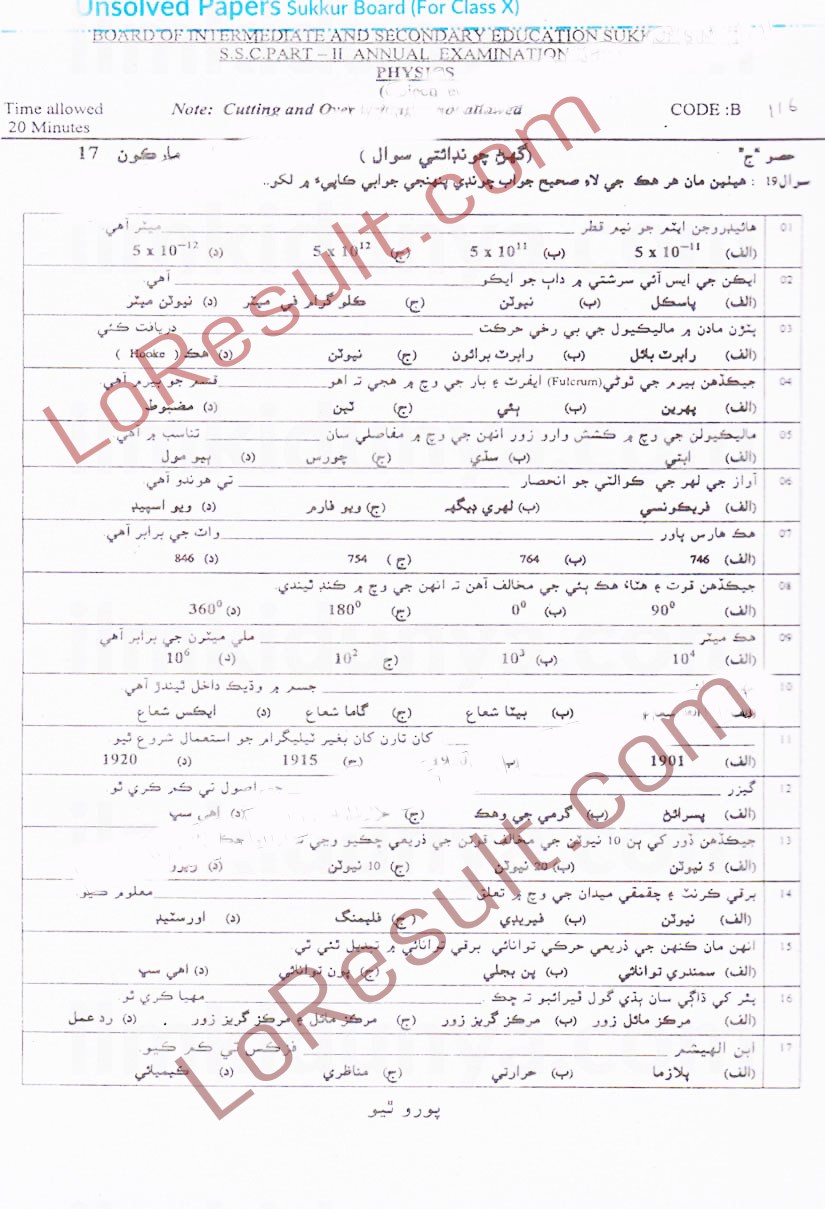 Unsolved Papers Sukkur Board (For Class X)
BOARD OF INTERMEDIATE AND SECONDARY EDUCATION SUKKUR
S.S.C.PART – II ANNUAL EXAMINATION
PHYSICS
Time allowed Note: Cutting and Over not allowed CODE :B
20 Minutes
حصو "ج" (گھڻ چونڊائتي سوال) مارڪون 17
سوال19 : هيٺين مان هر هڪ جي لاءِ صحيح جواب چونڊي پنهنجي جوابي ڪاپيءَ ۾ لکو..
01 هائيڊروجن ايٽم جو نيم قطر ______ ميٽر آهي.
(الف) 5 x 10⁻¹¹ (ب) 5 x 10¹¹ (ج) 5 x 10¹² (د) 5 x 10⁻¹²
02 ايڪن جي ايس آئي سرشتي ۾ داٻ جو ايڪو ______ آهي.
(الف) پاسڪل (ب) نيوٽن (ج) ڪلو گرام في ميٽر (د) نيوٽن ميٽر
03 پتڙن مادن ۾ ماليڪيول جي بي رخي حرڪت ______ دريافت ڪئي
(الف) رابرٽ بائل (ب) رابرٽ برائون (ج) نيوٽن (د) هڪ ( Hooke )
04 جيڪڏهن بيرم جي ٿوڻي(Fulcrum) ايفرٽ ۽ بار جي وچ ۾ هجي ته اهو ______ قسم جو بيرم آهي.
(الف) پهرين (ب) ٻئي (ج) ٽين (د) مضبوط
05 ماليڪيولن جي وچ ۾ ڪشش وارو زور انهن جي وچ ۾ مفاصلي سان ______ تناسب ۾ آهي.
(الف) ابتي (ب) سڌي (ج) چورس (د) ٻيو مول
06 آواز جي لهر جي ڪوالٽي جو انحصار ______ تي هوندو آهي.
(الف) فريڪوئنسي (ب) لهري ڊيگهه (ج) ويو فارم (د) ويو اسپيڊ
07 هڪ هارس پاور ______ واٽ جي برابر آهي.
(الف) 746 (ب) 764 (ج) 754 (د) 846
08 جيڪڏهن قوت ۽ هٽاءُ هڪ ٻئي جي مخالف آهن ته انهن جي وچ ۾ ڪنڊ ٿيندي.
(الف) 90⁰ (ب) 0⁰ (ج) 180⁰ (د) 360⁰
09 هڪ ميٽر ______ ملي ميٽرن جي برابر آهي
(الف) 10⁴ (ب) 10³ (ج) 10² (د) 10⁶
10 ______ جسم ۾ وڌيڪ داخل ٿيندڙ آهي
(ب) بيٽا شعاع (ج) گاما شعاع (د) ايڪس شعاع
11 ______ کان تارن کان بغير ٽيليگرام جو استعمال شروع ٿيو
(الف) 1901 (ب) (ج) 1915 (د) 1920
12 گيزر ______ اصول تي ڪم ڪري ٿو.
(الف) پسرائڻ (ب) گرمي جي وهڪ (ج) (د) اهي سڀ
13 جيڪڏهن ڏور کي ٻن 10 نيوٽن جي مخالف قوتن جي ذريعي ڇڪيو وڃي
(الف) 5 نيوٽن (ب) 20 نيوٽن (ج) 10 نيوٽن (د) زيرو
14 برقي ڪرنٽ ۽ چقمقي ميدان جي وچ ۾ تعلق ______ معلوم ڪيو.
(الف) نيوٽن (ب) فيريڊي (ج) فليمنگ (د) اورسٽيڊ
15 انهن مان ڪنهن جي ذريعي حرڪي توانائي برقي توانائي ۾ تبديل ٿئي ٿي.
(الف) سمنڊري توانائي (ب) پن بجلي (ج) پون توانائي (د) اهي سڀ
16 پٿر کي ڌاڳي سان ٻڌي گول ڦيرائبو ته ڇڪ ______ مهيا ڪري ٿو.
(الف) مرڪز مائل زور (ب) مرڪز گريز زور (ج) مرڪز مائل ۽ مرڪز گريز زور (د) رد عمل
17 ابن الهيشم ______ فزڪس تي ڪم ڪيو.
(الف) پلازما (ب) حرارتي (ج) مناظري (د) ڪيميائي
پورو ٿيو
LoResult.com
LoResult.com